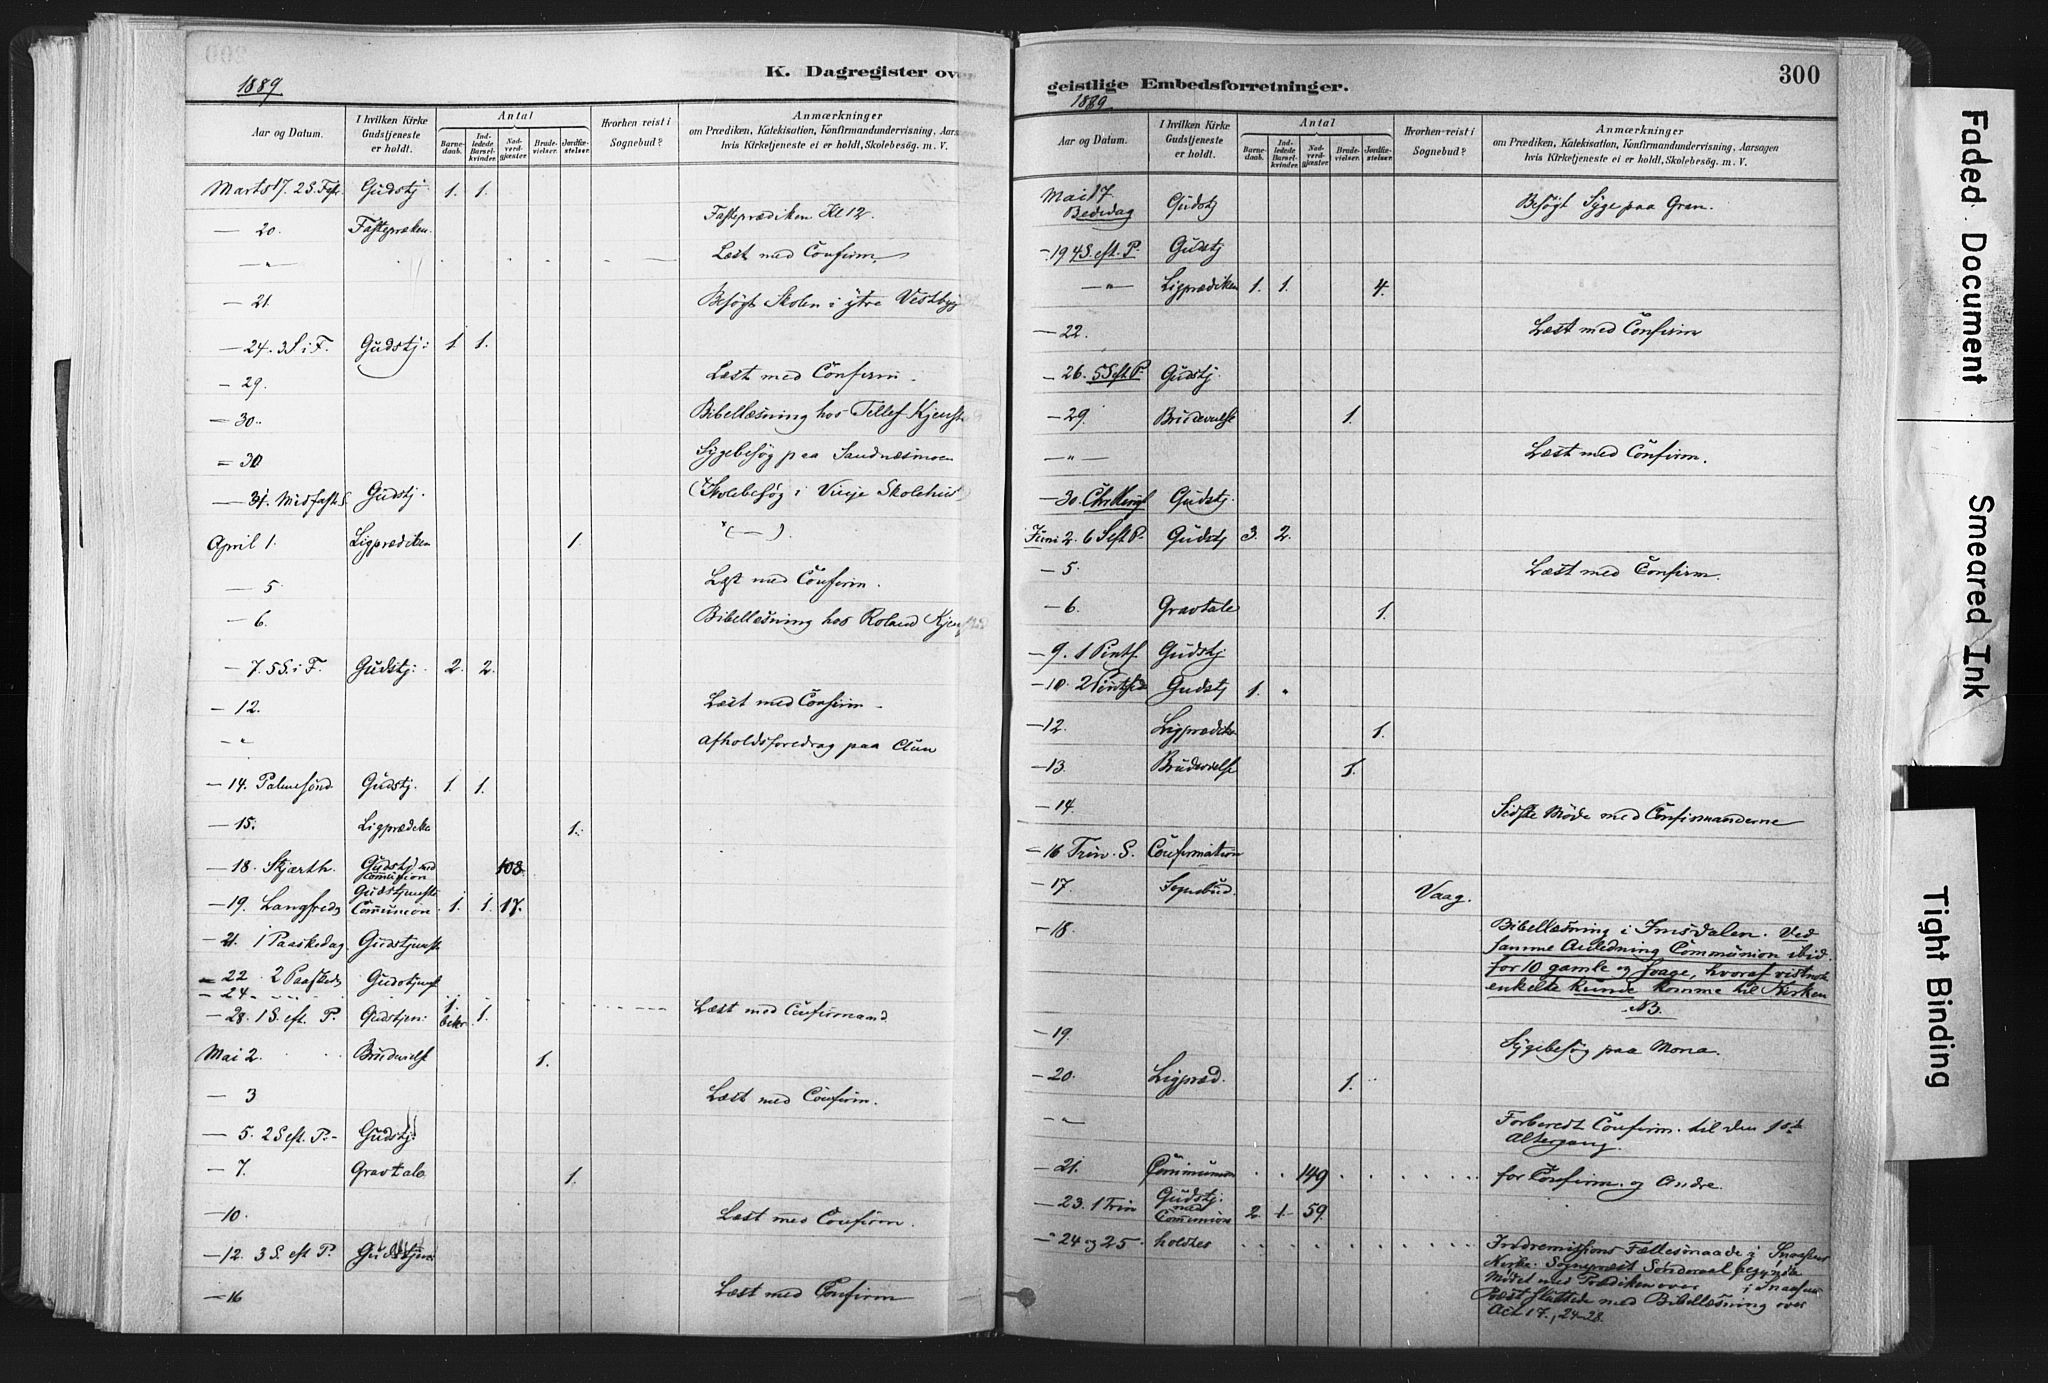 K. Dagregister over
1889
Aar og Datum.
I hvilken Kirke Gudstjeneste er holdt.
Antal
Barne-daab.
Ind-ledede Barsel-kvinder.
Nad-verd-gjæster.
Brude-vielser.
Jordfæ-stelser.
Hvorhen reist i Sognebud?
Anmærkninger
om Prædiken, Katekisation, Konfirmandundervisning, Aarsagen
hvis Kirketjeneste ei er holdt, Skolebesøg. m. V.
Marts 17. 2 S. Fast. Gudstj. 1. 1.
— 20. Fastepræken. Fasteprædiken Kl 12.
— " — Læst med Confirm.
— 21. Besøgt Skolen i ytre Vestbyg
— 24. 3 S i F. Gudstj: 1 1.
— 29. Læst med Confirm.
— 30. Bibellæsning hos Tellef Kjenst
— 30 Sygebesøg paa Sandnæsmoen
— 31. Midfast S. Gudstj. (Skolebesøg i Vinje Skolehus
April 1. Ligprædiken 1. "( — ).
— 5 Læst med Confirm.
— 6. Bibellæsning hos Roland Kjenstad
— 7. 5 S. i F. Gudstj: 2. 2.
— 12. Læst med Confirm
— " Afholdsforedrag paa Clun
— 14. Palmesønd. Gudstj. 1. 1.
— 15. Ligprædiken 1.
— 18. Skjærth. Gudstj med Communion 108.
— 19. Langfredg Gudstjenste Communion. 1. 1. 17.
— 21. 1 Paaskedag. Gudstjenst
— 22 . 2 Paaskedg Gudstjenst
— 24 Læst med Confirmand.
— 28. 1 S. eft. P. Gudstjen: 1. bekr. 1.
Mai 2. Brudevielse 1.
— 3 Læst med Confirm.
— 5. 2 S eft. P. Gudstj:
— 7. Gravtale 1.
— 10. Læst med Confirm.
— 12. 3 S. eft P. Gudstjen
— 16 Læst med Confirm
geistlige Embedsforretninger.
300
1889
Aar og Datum.
I hvilken Kirke Gudstjeneste er holdt.
Antal
Barne-daab.
Ind-ledede Barsel-kvinder.
Nad-verd-gjæster.
Brude-vielser.
Jordfæ-stelser.
Hvorhen reist i Sognebud?
Anmærkninger
om Prædiken, Katekisation, Konfirmandundervisning, Aarsagen
hvis Kirketjeneste ei er holdt, Skolebesøg. m. V.
Mai 17 Bededag Gudstj Besøgt Syge paa Gran.
— 19 4 S. eft. P. Gudstj
— " — Ligprædiken 1. 1. 4.
— 22. Læst med Confirm
— 26. 5 S eft P Gudstj.
— 29. Brudevielse 1.
— " — Læst med Confirm.
— 30. Chr. Himf Gudstj.
Juni 2. 6 S eft P. Gudstj 3. 2.
— 5. Læst med Confirm.
— 6. Gravtale 1.
— 9. 1 Pintsd. Gudstj.
— 10. 2 Pintsed Gudstj 1. "
— 12. Ligprædiken 1.
— 13. Brudevielse 1.
— 14. Sidste Møde med Confirmanderne
— 16 Trin. S. Confirmation
— 17. Sognebud. Vaag.
— 18 Bibellæsning i Imsdalen. Ved
samme Anledning Communion ibid.
for 10 gamle og svage, hvoraf vistnok
enkelte kunde komme til Kirken
NB.
— 19. Sygebesøg paa Mona.
— 20. Ligpræd. 1.
— " Forberedt Confirm. til den 1ste
Altergang.
— 21. Communion 149 for Confirm. og Andre.
— 23. 1 Trin Gudstj. med Communion 2. 1. 59.
— 24 og 25. holdtes Indremissions Fællesmøde i Snaasens
Kirke. Sogneprest begynde
Mødet med Prædiken over i Snaasen
Præst sluttede med Bibellæsning over
Act 17, 24-28.
Faded Document
Smeared Ink
Tight Binding